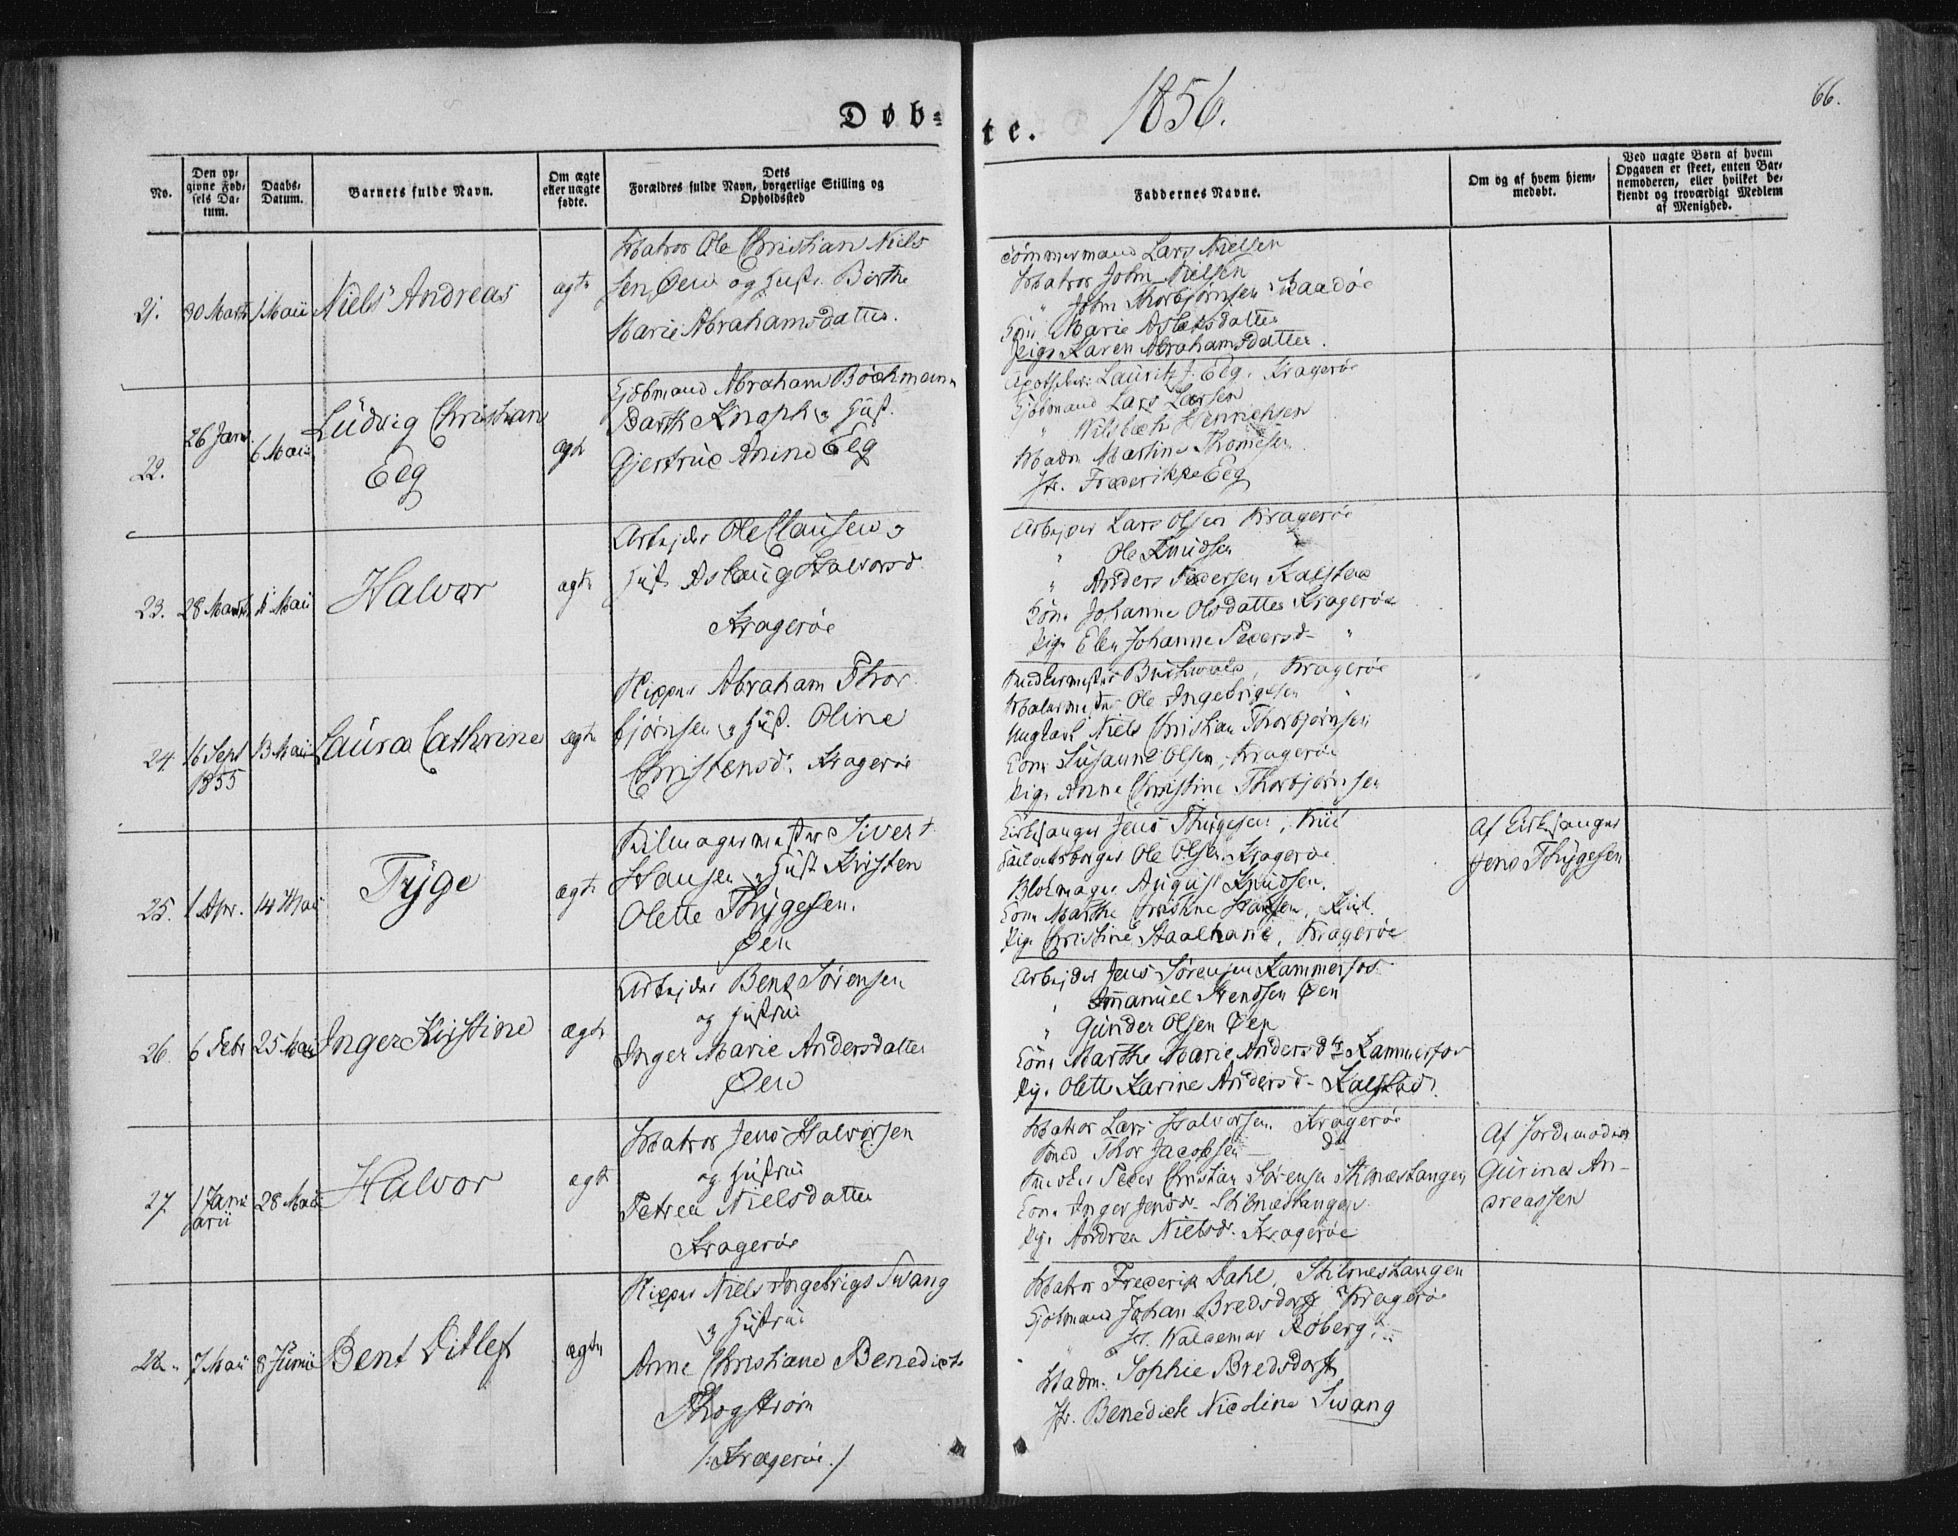 Døb-te.
1856.
66.
No.
Den op-
givne Fød-
sels Da-
tum.
Daabs-
Datum.
Barnets fulde Navn.
Om ægte
eller uægte
fødte.
Dets
Forældres fulde Navn, borgerlige Stilling og
Opholdssted
Faddernes Navne.
Om og af hvem hjem-
medøbt.
Ved uægte Børn af hvem
Opgaven er skeet, enten Bar-
nemoderen, eller hvilket be-
kjendt og troværdigt Medlem
af Menighed.
21.
30 Marts
1 Maii
Niels Andreas
ægte
Matros Ole Christian Niels
sen Øen og Hustr. Birthe
Marie Abrahamsdatter.
Tømmermand Lars Nielsen
Matros John Nielsen
" John Thorbjørnsen Kaadøe
Kone Marie Aslaksdatter
Pige Karen Abrahamsdatter.
22.
26 Jan.
6 Maii
Ludvig Christian
Eeg
ægte
Kjøbmand Abraham Bøckmann
Barth Knoph og Hust.
Gjertrud Anine Eeg
Apotheker Lauritz J. Eeg. Kragerøe
Kjøbmand Lars Larsen
" Henrichsen
Madm Martine Thomesen
Jfr. Frederikke Eeg
23.
28 Marts
Maii
Halvor
ægte
Arbejder Ole Clausen og
Hust Aslaug Halvorsd.
Kragerøe
Arbejder Lars Olsen Kragerøe
" Ole Knudsen
" Anders Pedersen Kalstad
Kone Johanne Olsdatter Kragerøe
Pige Elen Johanne Pedersd- "
24.
16 Sept
1855
13 Maii
Laura Cathrine
ægte
Skipper Abraham Thor
bjørnsen og Hust. Oline
Christensd. Kragerøe
Kragerøe
Malermester Ole Ingebrigtsen "
Ungkarl Niels Christian Thorbjørnsen
Kone Susanne Olsen, Kragerøe
Pige Anne Christine Thorbjørnsen
25.
1 Apr.
14 Maii
Tyge
ægte
Seilmagermester Sivert
Hansen og Hust Kirsten
Olette Thygesen.
Øen
Kirkesanger Jens Thygesen,
Ole Olsen Kragerøe
Blokmager August Knudsen.
Kone Marthe Christine Hansen,
Pige Christine Staalhane, Kragerøe
Af Kirkesanger
Jens Thygesen
26.
6 Febr
25 Maii
Inger Kirstine
ægte
Arbejder Bent Sørensen
og Hustrue
Inger Marie Andersdatter
Øen
Arbejder Jens Sørensen Kammerfos
" Emanuel Svendsen Øen
" Gunder Olsen Øen
Kone Marthe Marie Andersdtr Kammerfos
Pig. Olette Karine Andersd- Kalstad.
27.
1 Janu
arii
28 Maii
Halvor
ægte
Matros Jens Halvorsen
og Hustrue
Petrea Nielsdatter
Kragerøe
Matros Lars Halvorsen. Kragerøe
Smed Thor Jacobsen — do
Snedker Peder Christian Sørensen Stilnestangen
Kone Inger Jensdr- Stilnestangen
Pige Andrea Nielsdr. Kragerøe
Af Jordemoder
Gurine An-
dreassen
28.
7 Maii
8 Junii
Bent Ditlef
ægte
Skipper Niels Ingebrigt Swang
og Hustrue
Anne Christiane Benedicte
Skogstrøm
/: Kragerøe :/
Matros Frederik Dahl, Stilnestangen
Kjøbmand Johan Bredsdorff Kragerøe
" Waldemar Roberg.
Madm. Sophie Bredsdorff
Jfr. Benedicte Nicoline Swang